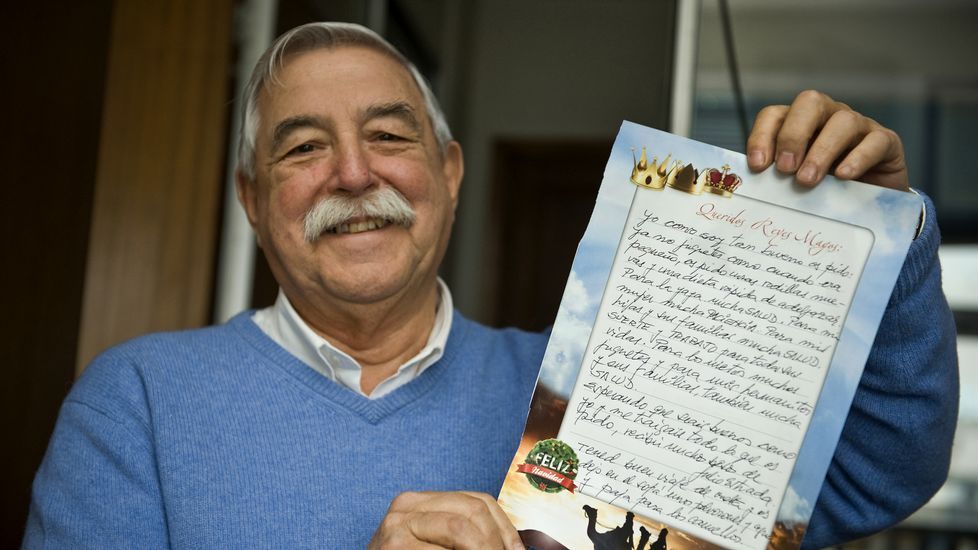 Queridos Reyes Magos:
yo como soy tan bueno os pido.
ya no juguetes como cuando era
pequeño, os pido unas rodillas nue-
vas y una dieta rápida de adelgazar.
Para la yaya mucha SALUD. Para mi
mujer mucha PACIENCIA. Para mis
hijas y sus familias mucha SALUD.
SUERTE y TRABAJO para todas sus
vidas. Para los nietos muchos
juguetes y para mis hermanitos
y sus familias, también mucha
SALUD.
esperando que seais buenos como
yo y me traigais todo lo que os
pido, recibir mucho de
Tened buen viaje de vuelta y os
dejo en el sofá unos y
y paja para los camellos
FELIZ
Navidad